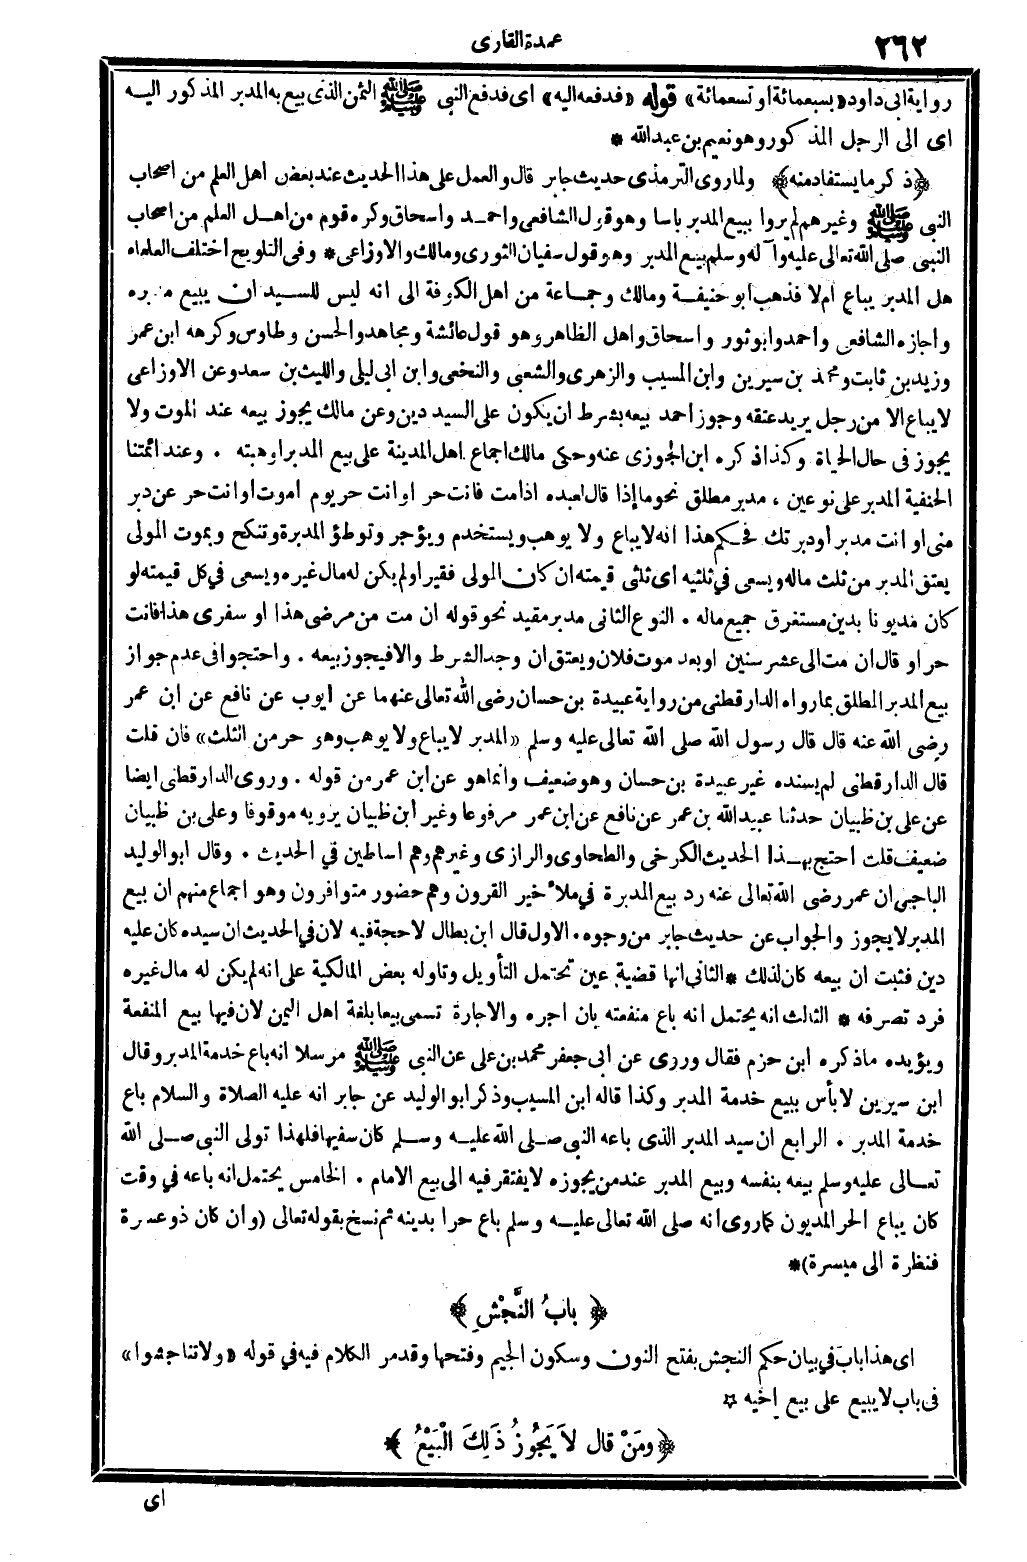 ٢٦٢
عمدة القارى
رواية ابى داود «بسبعمائة او تسعمائة» قوله «فدفعه اليه» اى فدفع النبى ﷺ الثمن الذى بيع به المدبر المذكور اليه
اى الى الرجل المذكور وهو نعيم بن عبدالله *
﴿ذكر ما يستفاد منه﴾ ولما روى الترمذى حديث جابر قال والعمل على هذا الحديث عند بعض اهل العلم من اصحاب
النبى ﷺ وغيرهم لم يروا ببيع المدبر باسا وهو قول الشافعى واحمد واسحاق وكره قوم من اهل العلم من اصحاب
النبى صلى الله تعالى عليه وآله وسلم بيع المدبر وهو قول سفيان الثورى ومالك والاوزاعى * وفى التلويح اختلف العلماء
هل المدبر يباع ام لا فذهب ابو حنيفة ومالك وجماعة من اهل الكوفة الى انه ليس للسيد ان يبيع مدبره
واجازه الشافعى واحمد وابو ثور واسحاق واهل الظاهر وهو قول عائشة ومجاهد والحسن وطاوس وكرهه ابن عمر
وزيد بن ثابت ومحمد بن سيرين وابن المسيب والزهرى والشعبى والنخعى وابن ابى ليلى والليث بن سعد وعن الاوزاعى
لا يباع الا من رجل يريد عتقه وجوز احمد بيعه بشرط ان يكون على السيد دين وعن مالك يجوز بيعه عند الموت ولا
يجوز فى حال الحياة وكذا ذكره ابن الجوزى عنه وحكى مالك اجماع اهل المدينة على بيع المدبر او هبته . وعند ائمتنا
الحنفية المدبر على نوعين . مدبر مطلق نحو ما إذا قال لعبده اذا مت فانت حر او انت حر يوم اموت او انت حر عن دبر
منى او انت مدبر أو دبرتك فحكم هذا انه لا يباع ولا يوهب ويستخدم ويؤجر وتوطؤ المدبرة وتنكح وبموت المولى
يعتق المدبر من ثلث ماله ويسعى فى ثلثيه اى ثلثى قيمته ان كان المولى فقيرا ولم يكن له مال غيره ويسعى في كل قيمته لو
كان مديونا بدين مستغرق جميع ماله . النوع الثانى مدبر مقيد نحو قوله ان مت من مرضى هذا او سفرى هذا فانت
حر او قال ان مت الى عشر سنين او بعد موت فلان ويعتق ان وجد الشرط والا فيجوز بيعه . واحتجوا فى عدم جواز
بيع المدبر المطلق بما رواه الدارقطنى من رواية عبيدة بن حسان رضى الله تعالى عنهما عن ايوب عن نافع عن ابن عمر
رضى الله عنه قال قال رسول الله صلى الله تعالى عليه وسلم «المدبر لا يباع ولا يوهب وهو حر من الثلث» فان قلت
قال الدارقطنى لم يسنده غير عبيدة بن حسان وهو ضعيف وانما هو عن ابن عمر من قوله . وروى الدارقطنى ايضا
عن على بن ظبيان حدثنا عبيدالله بن عمر عن نافع عن ابن عمر مرفوعا وغير أبن ظبيان يرويه موقوفا وعلى بن ظبيان
ضعيف قلت احتج بهذا الحديث الكرخى والطحاوى والرازى وغيرهم وهم اساطين في الحديث . وقال ابو الوليد
الباجى ان عمر رضى الله تعالى عنه رد بيع المدبرة في ملأ خير القرون وهم حضور متوافرون وهو اجماع منهم ان بيع
المدبر لا يجوز والجواب عن حديث جابر من وجوه . الاول قال ابن بطال لا حجة فيه لان في الحديث ان سيده كان عليه
دين فثبت ان بيعه كان لذلك * الثانى انها قضية عين تحتمل التأويل وتاوله بعض المالكية على انه لم يكن له مال غيره
فرد تصرفه * الثالث انه يحتمل انه باع منفعته بان اجره والاجارة تسمى بيعا بلغة اهل اليمن لان فيها بيع المنفعة
ويؤيده ما ذكره ابن حزم فقال وروى عن ابى جعفر محمد بن على عن النبى ﷺ مرسلا انه باع خدمة المدبر وقال
ابن سيرين لا بأس ببيع خدمة المدبر وكذا قاله ابن المسيب وذكر ابو الوليد عن جابر انه عليه الصلاة والسلام باع
خدمة المدبر . الرابع ان سيد المدبر الذى باعه النبى صلى الله عليه وسلم كان سفيها فلهذا تولى النبى صلى الله
تعالى عليه وسلم بيعه بنفسه وبيع المدبر عند من يجوزه لا يفتقر فيه الى بيع الامام . الخامس يحتمل انه باعه في وقت
كان يباع الحر المديون كما روى انه صلى الله تعالى عليه وسلم باع حرا بدينه ثم نسخ بقوله تعالى (وان كان ذو عسرة
فنظرة الى ميسرة) *
﴿ بابُ النَّجْشِ ﴾
اى هذا باب في بيان حكم النجش بفتح النون وسكون الجيم وفتحها وقد مر الكلام فيه في قوله «ولا تناجشوا»
فى باب لا يبيع على بيع اخيه ☆
﴿ ومَنْ قال لاَ يَجُوزُ ذَلِكَ الْبَيْعُ ﴾
اى